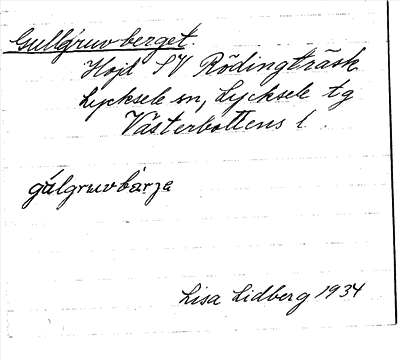 Gullgruvberget.
Höjd SV Rödingträsk
Lycksele sn, Lycksele tg
Västerbottens l.
gúlgruvbärja
Lisa Lidberg 1934